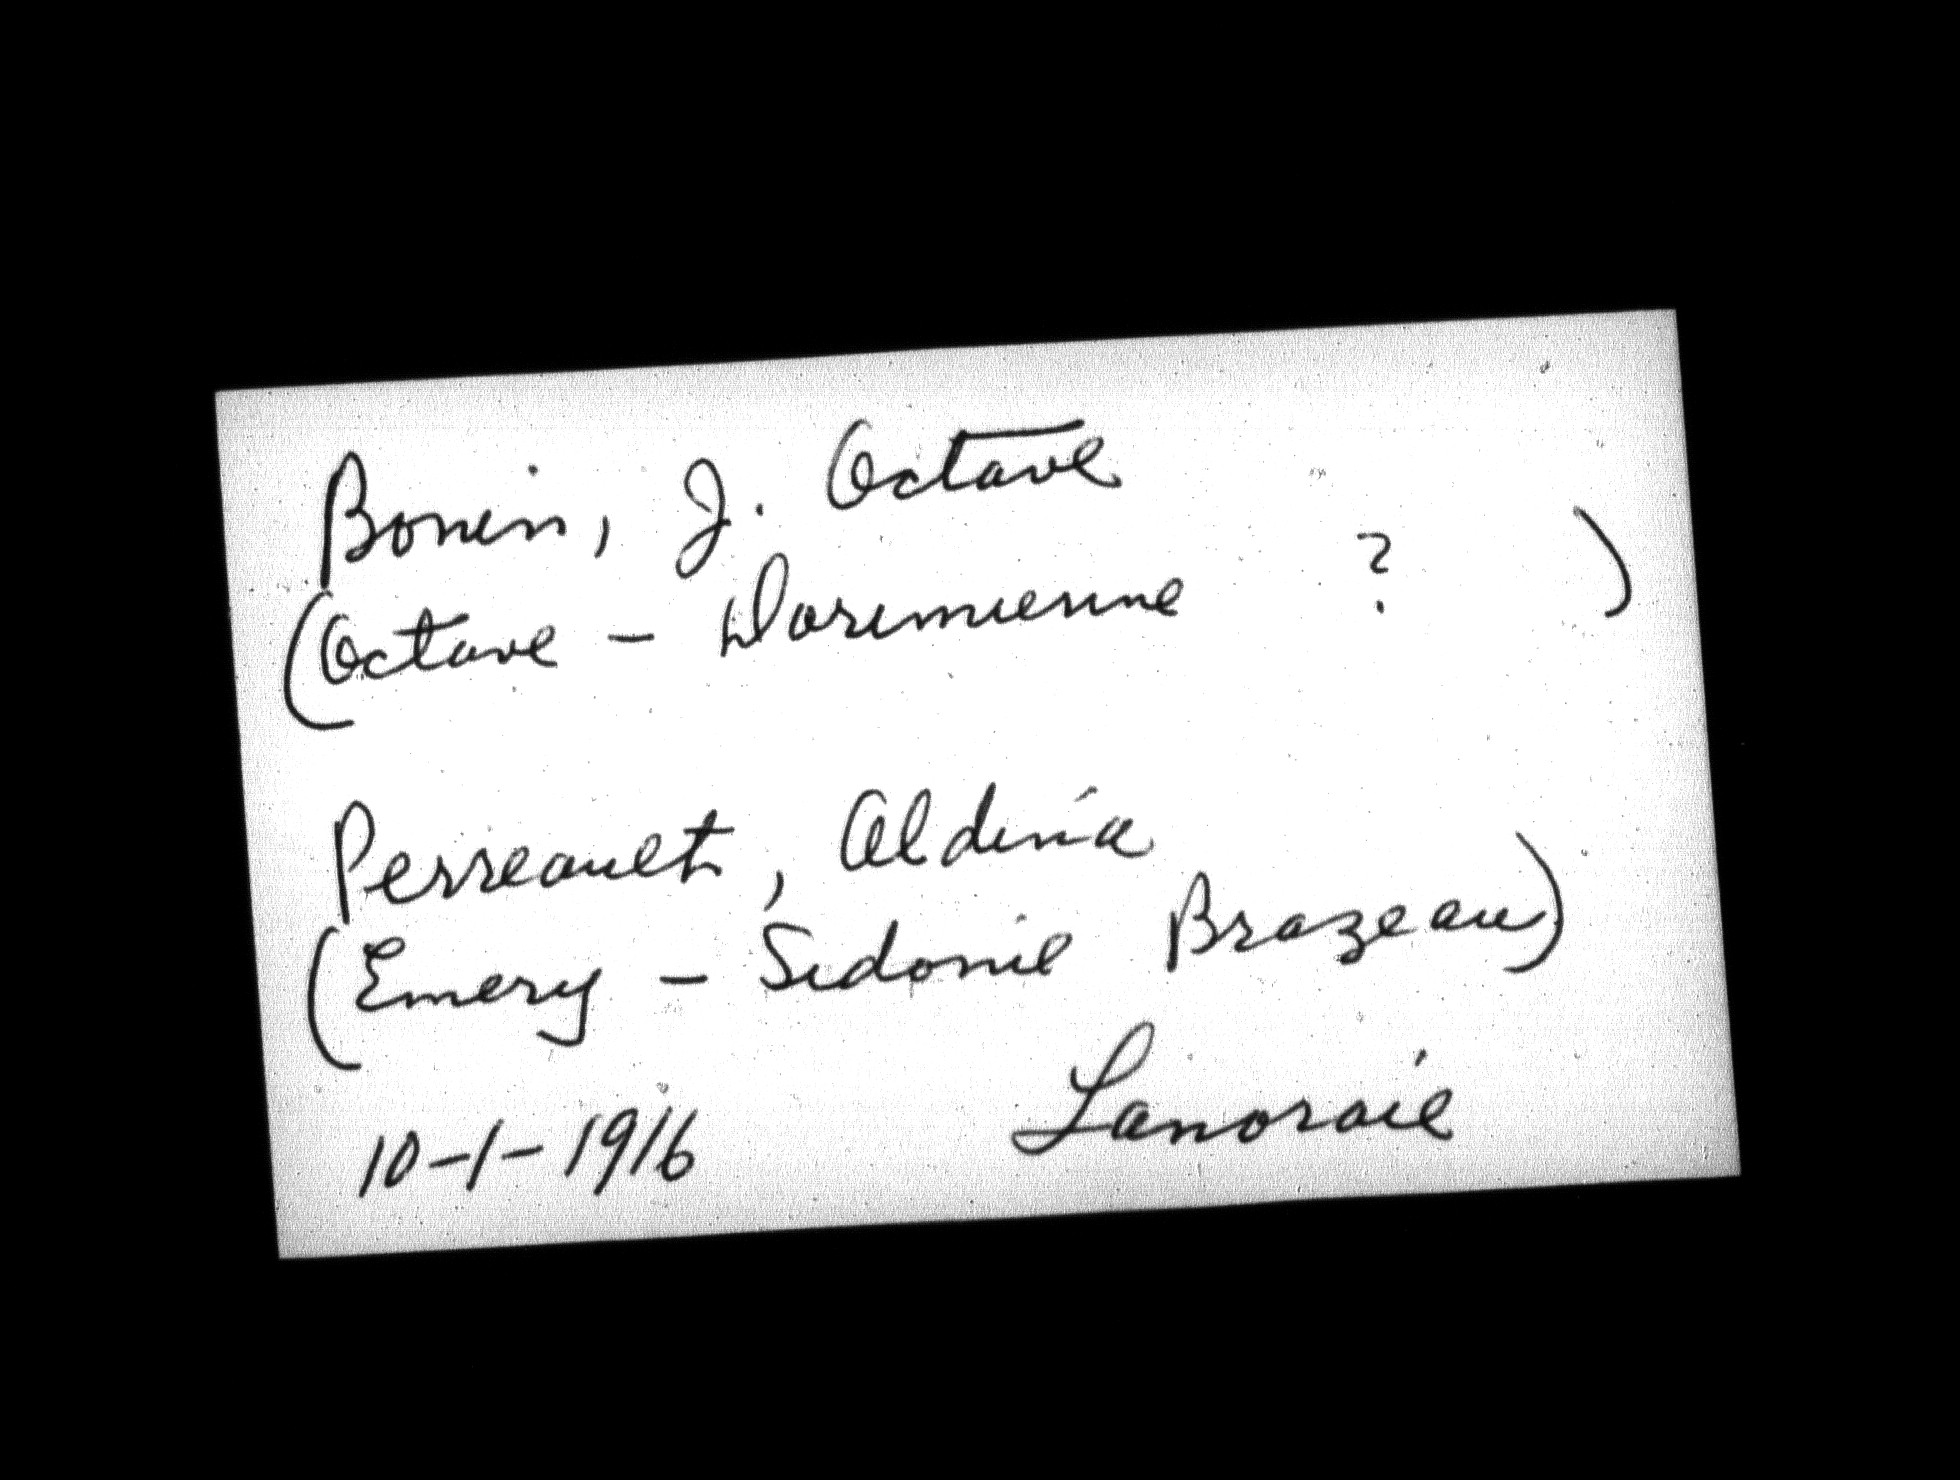 Bonin, J. Octave
(Octave - Dorimienne ? )
Perreault, Aldina
(Emery - Sidonie Brazeau)
10-1-1916 Lanoraie